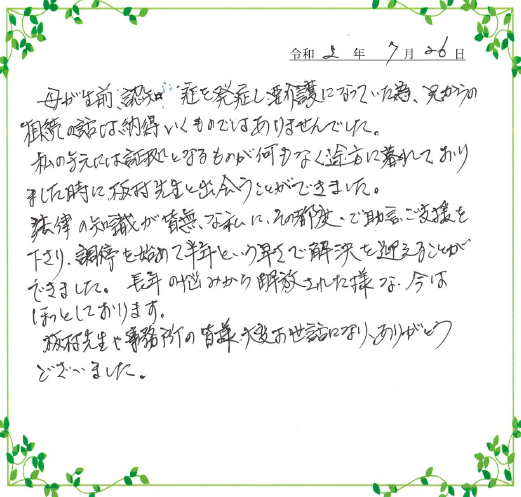 令和 5 年 7 月 26 日
母が生前、認知症を発症し要介護になっていた為、兄からの
相続の話は納得いくものではありませんでした。
私の手元には証拠となるものが何もなく途方に暮れており
ました時に坂村先生と出会うことができました。
法律の知識が皆無な私に、その都度、ご助言、ご支援を
下さり、調停を始めて半年という早さで解決を迎えることが
できました。長年の悩みから開放された様な、今は
ほっとしております。
坂村先生や事務所の皆様、大変お世話になり、ありがとう
ございました。